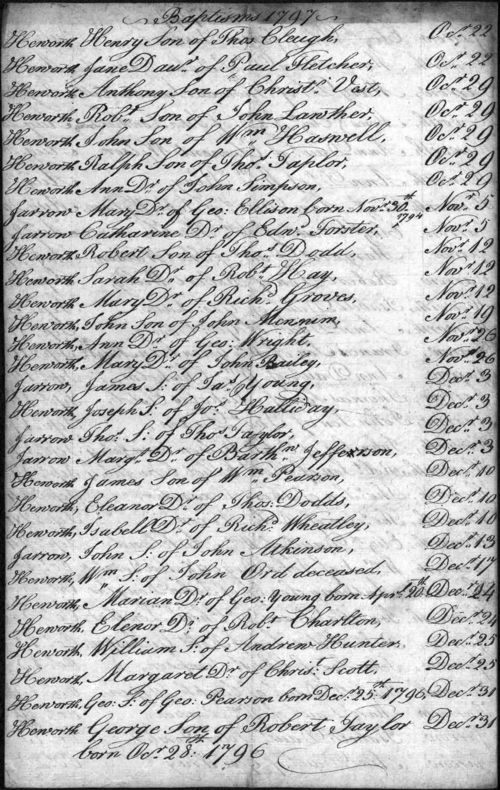 Baptisms 1797
Heworth Henry Son of Thos Cleugh, Octr. 22
Heworth Jane Daur. of Paul Fletcher, Octr. 22
Heworth Anthony Son of Christr. Vest, Octr. 29
Heworth Robt. Son of John Lawther, Octr. 29
Heworth John Son of Wm. Haswell, Octr. 29
Heworth Ralph Son of Thos. Taylor, Octr. 29
Heworth Ann Dr. of John Simpson, Octr. 29
Jarrow Mary Dr. of Geo: Ellison born Novr. 30th 1794 Novr. 5
Jarrow Catharine Dr. of Edwd. Forster, Novr. 5
Heworth Robert Son of Thos. Dodd, Novr. 12
Heworth Sarah Dr. of Robt. Hay, Novr. 12
Heworth Mary Dr. of Richd. Groves, Novr. 12
Heworth, John Son of John Mennim, Novr. 19
Heworth, Ann Dr. of Geo: Wright, Novr. 26
Heworth, Mary Dr. of John Bailey, Novr. 26
Jarrow, James S: of Jas. Young, Decr. 3
Heworth Joseph S: of Jos. Halliday, Decr. 3
Jarrow Thos. S: of Thos. Taylor, Decr. 3
Jarrow Margt. Dr. of Barthw. Jefferson, Decr. 3
Heworth James Son of Wm. Pearson, Decr. 10
Heworth, Eleanor Dr. of Thos: Dodds, Decr. 10
Heworth, Isabell Dr. of Richd. Wheatley, Decr. 10
Jarrow, John S: of John Atkinson, Decr. 13
Heworth, Wm. S: of John Ord deceased, Decr. 17
Heworth, Marian Dr. of Geo: Young born Aprl. 20th Decr. 24
Heworth, Elenor Dr. of Robt. Charlton, Decr. 24
Heworth William S: of Andrew Hunter, Decr. 25
Heworth, Margaret Dr. of Christ. Scott, Decr. 25
Heworth, Geo: S: of Geo: Pearson born Decr. 25th 1796 Decr. 31
Heworth George Son of Robert Taylor Decr. 31
born Octr. 28th: 1796